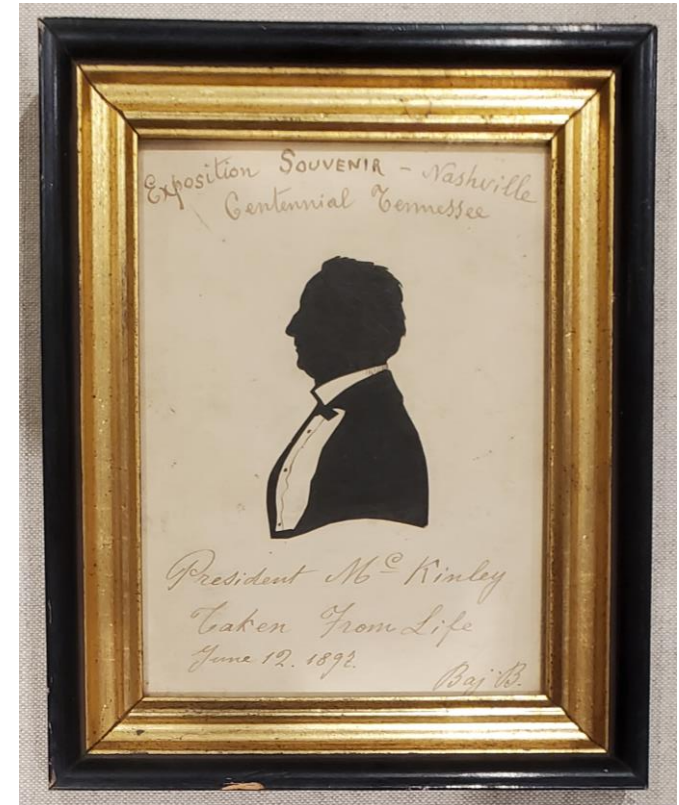 Exposition SOUVENIR - Nashville
Centennial Tennessee
President Mc Kinley
Taken From Life
June 12. 1897.
Baj. B.